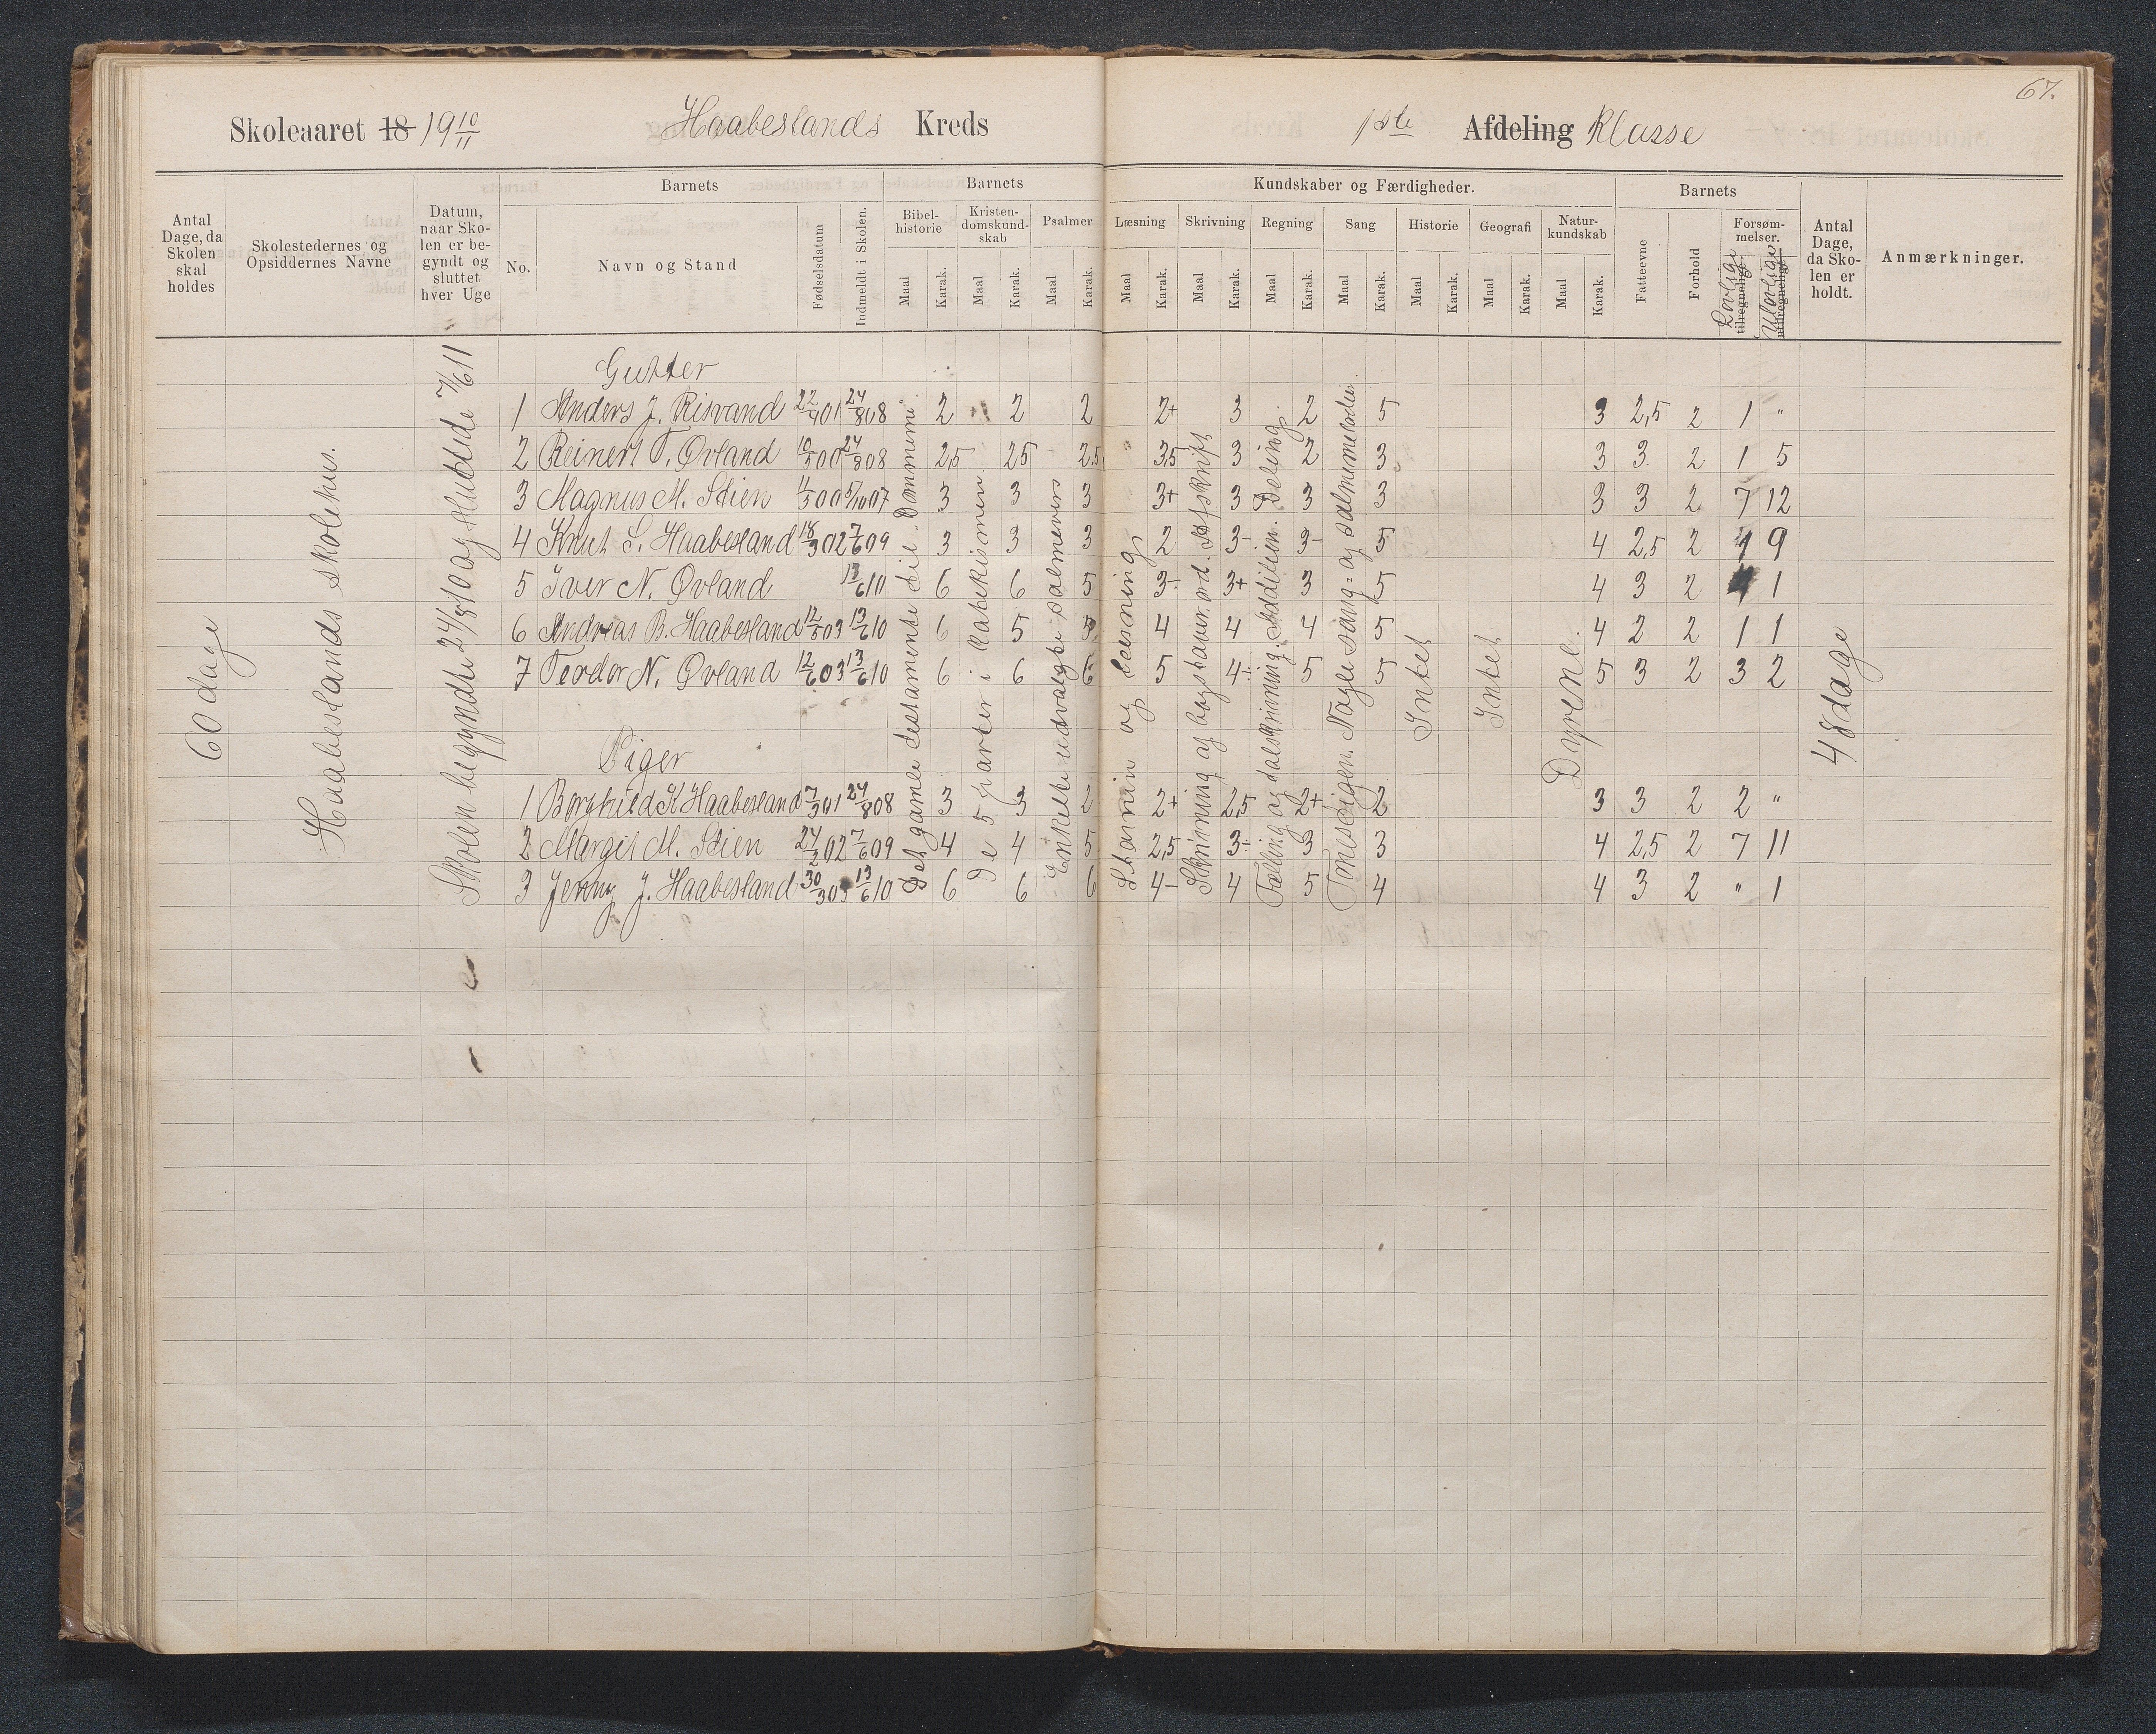 67.
Skoleaaret 18 19 10/11 Haabeslands Kreds 1ste Afdeling Klasse
Antal Dage, da Skolen skal holdes
Skolestedernes og Opsiddernes Navne
Datum, naar Skolen er begyndt og sluttet hver Uge
Barnets
No.
Navn og Stand
Fødselsdatum
Indmeldt i Skolen.
Barnets
Bibelhistorie Maal Karak.
Kristendomskundskab Maal Karak.
Psalmer Maal Karak.
Kundskaber og Færdigheder.
Læsning Maal Karak.
Skrivning Maal Karak.
Regning Maal Karak.
Sang Maal Karak.
Historie Maal Karak.
Geografi Maal Karak.
Naturkundskab Maal Karak.
Barnets
Fatteevne
Forhold
Forsømmelser.
Lovlige tilregnelige
Ulovlige utilregnelige
Antal Dage, da Skolen er holdt.
Anmærkninger.
60 dage
Haabeslands skolehus.
Skolen begyndte 24/8 10 og sluttede 7/6 11
Det gamle testamente til Dommerne.
De 5 parter i katekismen
Enkelte udvalgte salmevers
Stavnin og læsning
Skrivning af bogstaver. ord. Afskrift
Tælling og talskrivning. Addition. Deling.
Tonestigen. Nogle sang= og salmemelodier.
Intet
Intet
Dyrene.
48 dage
Gutter
1 Anders J. Risvand 22/4 01 24/8 08 2 2 2 2+ 3 2 5 3 2,5 2 1 "
2 Reinert T. Øvland 10/5 00 24/8 08 2,5 25 2,5 3,5 3 2 3 3 3 2 1 5
3 Magnus M. Stien 11/5 00 5/10 07 3 3 3 3+ 3 3 3 3 3 2 7 12
4 Knut S. Haabesland 18/3 02 7/6 09 3 3 3 2 3- 3- 5 4 2,5 2 1 9
5 Iver N. Øvland 13/6 10 6 6 5 3- 3+ 3 5 4 3 2 1 1
6 Andreas B. Haabesland 12/5 03 13/6 10 6 5 5 4 4 4 5 4 2 2 1 1
7 Teodor N. Øvland 12/6 03 13/6 10 6 6 6 5 4÷ 5 5 5 3 2 3 2
Piger
1 Borghild K Haabesland 7/3 01 24/8 08 3 3 2 2+ 2,5 2+ 2 3 3 2 2 "
2 Margit M. Stien 24/2 02 7/6 09 4 4 5 2,5 3÷ 3 3 4 2,5 2 7 11
3 Jenny J. Haabesland 30/3 03 13/6 10 6 6 6 4- 4 5 4 4 3 2 " 1